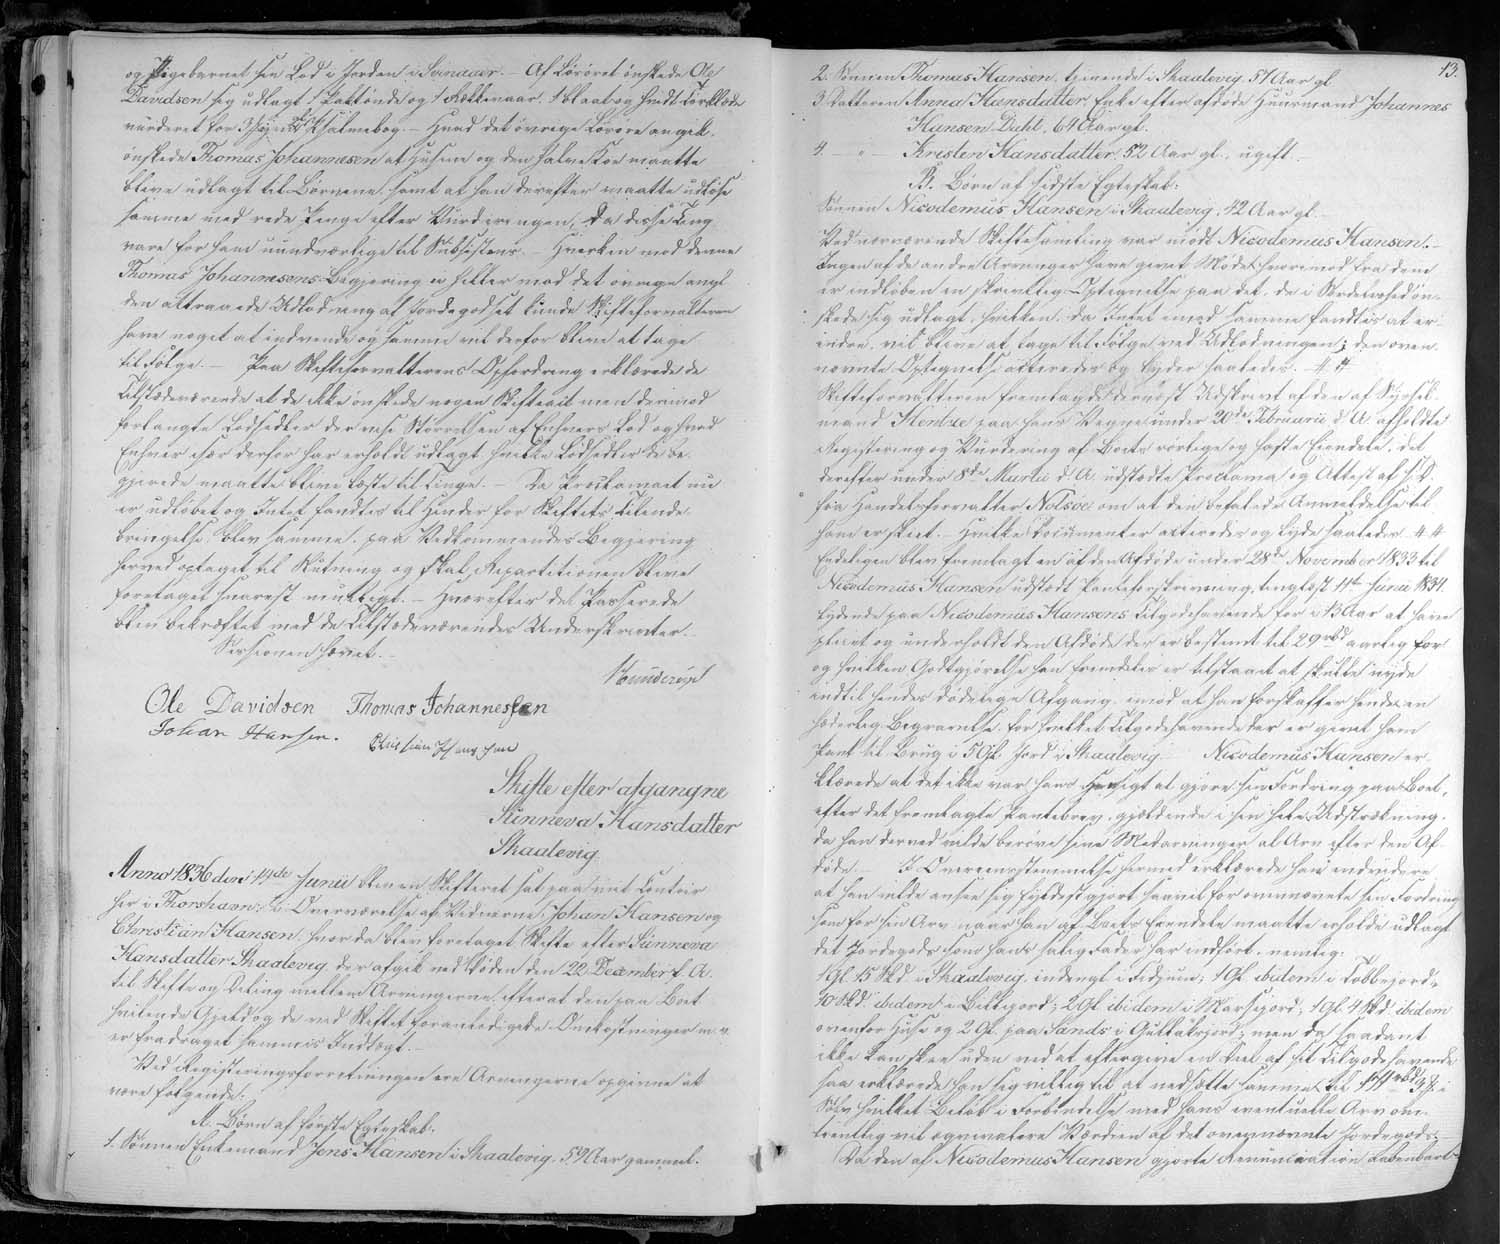 og Pigebarnet sin Lod i Jorden i Svinaaer. – Af Løsøret ønskede Ole
Davidsen sig udlagt 1 og 1 1 blaat og hvidt Tørklæde
vurderet for og Psalmebog. – Hvad det øvrige Løsøre angik,
ønskede Thomas Johannesen at Husene og den halve Koe maatte
blive udlagt til Børnene, samt at han derefter maatte udløse
samme med rede Penge efter Vurderingen, da disse Ting
vare for ham uundværlige til Subsistens. – Hverken mod denne
Thomas Johannesens Begjering ei heller mod det øvrige angl.
den attraaede Udlodning af Jordegodset kunde Skifteforvalteren
have noget at indvende og samme vil derfor blive at tage
til Følge. – Paa Skifteforvalterens Opfordring erklærede de
Tilstædeværende at de ikke ønskede nogen Skifteact men derimod
forlangte Lodsedler der vise Størrelsen af Enhvers Lod og hvad
Enhver især derfor har erholdt udlagt, hvilke Lodsedler de be-
gjerede maatte blive læste til Tinge. – Da Proclamaet nu
er udløbet og Intet fandtes til Hinder for Skiftets Tilende-
bringelse, blev samme, paa Vedkommendes Begjering
herved optaget til Slutning og skal Repartitionen blive
foretaget snarest mueligt. – Hvorefter det Passerede
blev bekræftet med de Tilstædeværendes Underskrifter.
Sessionen hævet. –
Ole Davidsen Thomas Johannessen
Johan Hansen. Christian Hansen
Skifte efter afgangne
Sunneva Hansdatter
Skaalevig
Anno 1836 den 17de Junii blev en Skifteret sat paa mit Contoir
her i Thorshavn, i Overværelse af Vidnerne, Johan Hansen og
Christian Hansen, hvor da blev foretaget Skifte efter Sunneva
Hansdatter Skaalevig, der afgik ved Døden den 22 December f. A.
til Skifte og Deling mellem Arvingerne, efterat den paa Boet
hvilende Gjæld og de ved Skiftet foranledigede Omkostninger m. v.
er fradraget sammes Indtægt. –
Ved Registeringsforretningen ere Arvingerne opgivne at
være følgende:
A. Børn af første Egteskab:
1. Sønnen Enkemand Jens Hansen i Skaalevig, 59 Aar gammel.
13.
2. Sønnen Thomas Hansen, tjenende i Skaalevig, 51 Aar gl.
3. Datteren Anna Hansdatter, Enke efter afdøde Huusmand Johannes
Hansen Dahl, 64 Aar gl.
4. – " – Kristen Hansdatter, 52 Aar gl., ugift.
B. Børn af sidste Egteskab:
Sønnen Nicodemus Hansen i Skaalevig, 42 Aar gl.
Ved nærværende Skiftesamling var mødt Nicodemus Hansen. –
Ingen af de andre Arvinger have givet Møde, hvorimod fra dem
er indløben en skriftlig Optegnelse paa det, de i Særdeleshed øn-
skede sig udlagt, hvilken, da Intet imod samme fandtes at er-
indre, vil blive at tage til Følge ved Udlodningen; den oven-
nævnte Optegnelse acteredes og lyder saaledes. # #
Skifteforvalteren fremlagde dernæst Udskrivt af den af Syssel-
mand Hentze paa hans Vegne under 20de Februarii d. A. afholdte
Registering og Vurdering af Boets rørlige og faste Eiendele, det
derefter under 8de Martii d. A. udstædte Proclama og Attest af
fra Handelsforvalter Nolsøe om at den befalede Anmeldelse til
ham er skeet. – Hvilke Documenter acteredes og lyde saaledes # #
Endeligen blev fremlagt en af den Afdøde under 28de November 1833 til
Nicodemus Hansen udstædt Panteforskrivning, tinglæst 11te Junii 1834.
lydende paa Nicodemus Hansens Tilgodehavende for i 13 Aar at have
pleiet og underholdt den Afdøde der er bestemt til 29 rbd aarlig for
og hvilken Godtgjørelse han fremdeles er tilstaaet at skulle nyde
indtil hendes dødelige Afgang, imod at han forskaffer hende en
hæderlig Begravelse, for hvilket Tilgodehavende der er givet ham
Pant til Brug i 5 Gl. Jord i Skaalevig. – Nicodemus Hansen er-
klærede at det ikke var hans Hensigt at gjøre sin Fordring paa Boet,
efter det fremlagte Pantebrev, gjældende i sin hele Udstrækning,
da han derved vilde berøve sine Medarvinger al Arv efter den Af-
døde. – I Overeensstemmelse hermed erklærede han endvidere
at han vilde ansee sig fyldestgjort saavel for ovennævnte sin Fordring
som for sin Arv naar han af Boets Eiendele maatte erholde udlagt
det Jordegods som hans salig Fader har indført, nemlig:
1 Gl. 15 Skd. i Skaalevig, indengl. i ; 1 Gl. ibidem i
10 Skd. ibidem i ; 2 Gl. ibidem i ; 1 Gl. 4 Skd. ibidem
ovenfor Huse og 2 Gl. paa Sands i ; men da saadant
ikke kan skee uden ved at eftergive en Deel af sit Tilgodehavende
saa erklærede han sig villig til at nedsætte samme til rbd i
Sølv, hvilket Beløb i Forbindelse med hans eventuelle Arv om-
trentlig vil æqvivalere Værdien af det ovennævnte Jordegods. –
Da den af Nicodemus Hansen gjorte Renunciation aabenbart